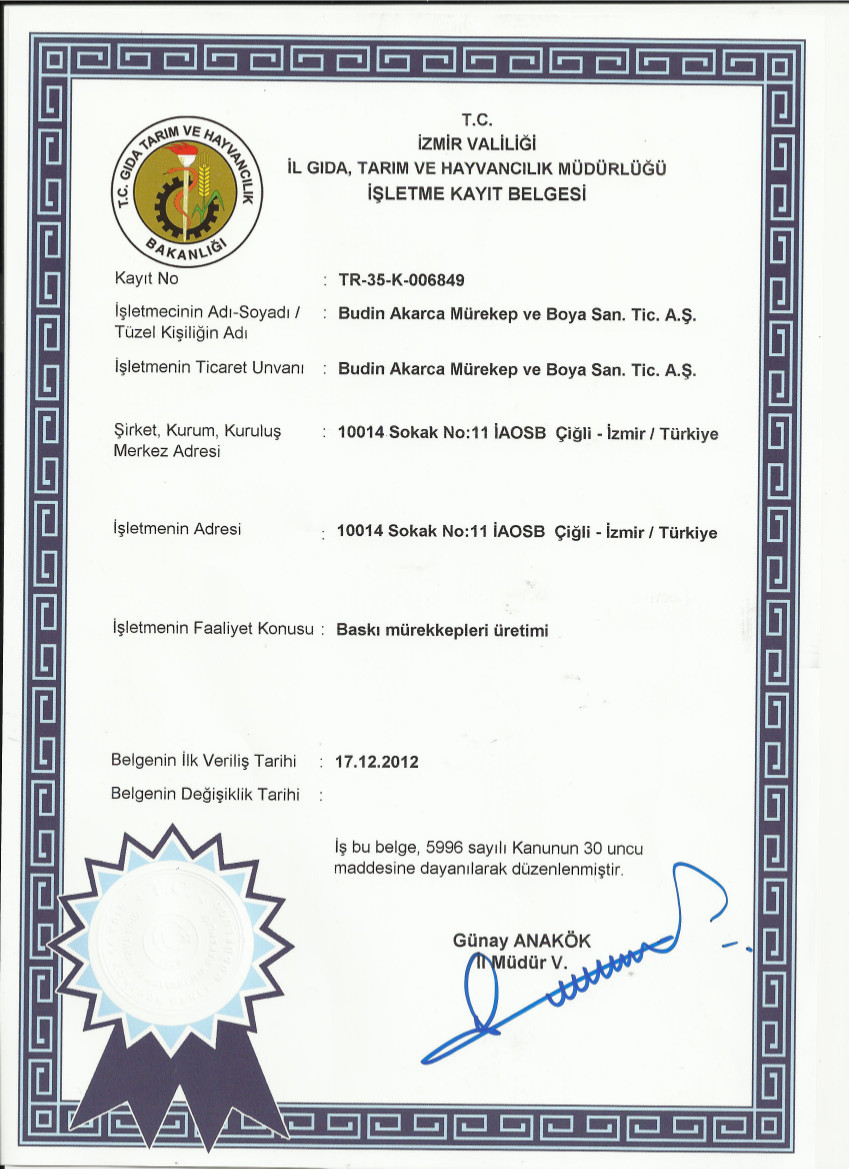 T.C. GIDA TARIM VE HAYVANCILIK
BAKANLIĞI
T.C.
İZMİR VALİLİĞİ
İL GIDA, TARIM VE HAYVANCILIK MÜDÜRLÜĞÜ
İŞLETME KAYIT BELGESİ
Kayıt No : TR-35-K-006849
İşletmecinin Adı-Soyadı / : Budin Akarca Mürekep ve Boya San. Tic. A.Ş.
Tüzel Kişiliğin Adı
İşletmenin Ticaret Unvanı : Budin Akarca Mürekep ve Boya San. Tic. A.Ş.
Şirket, Kurum, Kuruluş : 10014 Sokak No:11 İAOSB Çiğli - İzmir / Türkiye
Merkez Adresi
İşletmenin Adresi : 10014 Sokak No:11 İAOSB Çiğli - İzmir / Türkiye
İşletmenin Faaliyet Konusu : Baskı mürekkepleri üretimi
Belgenin İlk Veriliş Tarihi : 17.12.2012
Belgenin Değişiklik Tarihi :
İş bu belge, 5996 sayılı Kanunun 30 uncu
maddesine dayanılarak düzenlenmiştir.
Günay ANAKÖK
İl Müdür V.